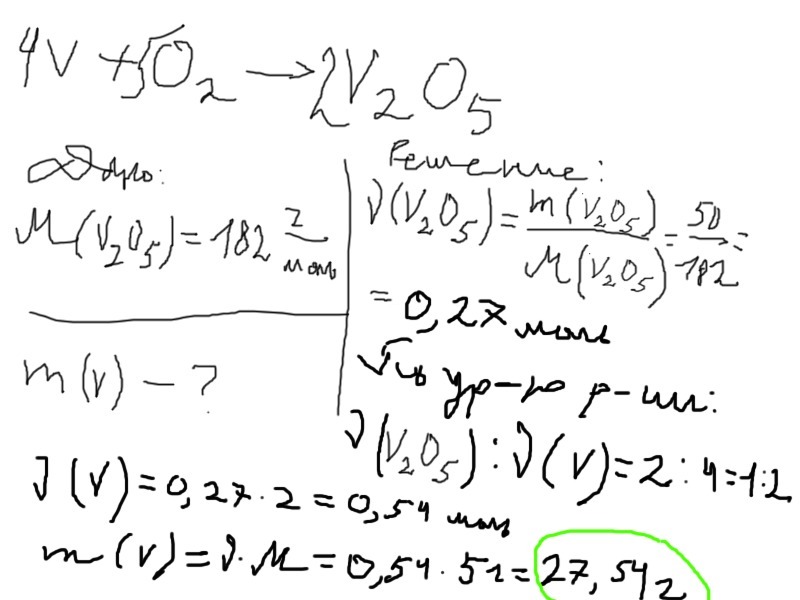 4V + 5O₂ → 2V₂O₅
Дано:
M(V₂O₅) = 182 г/моль
m(V) – ?
Решение:
ν(V₂O₅) = m(V₂O₅)/M(V₂O₅) = 50/182 =
= 0,27 моль
ур-ю р-ии:
ν(V₂O₅) : ν(V) = 2 : 4 = 1:2
ν(V) = 0,27 · 2 = 0,54 моль
m(V) = ν · M = 0,54 · 51 = 27,54 г